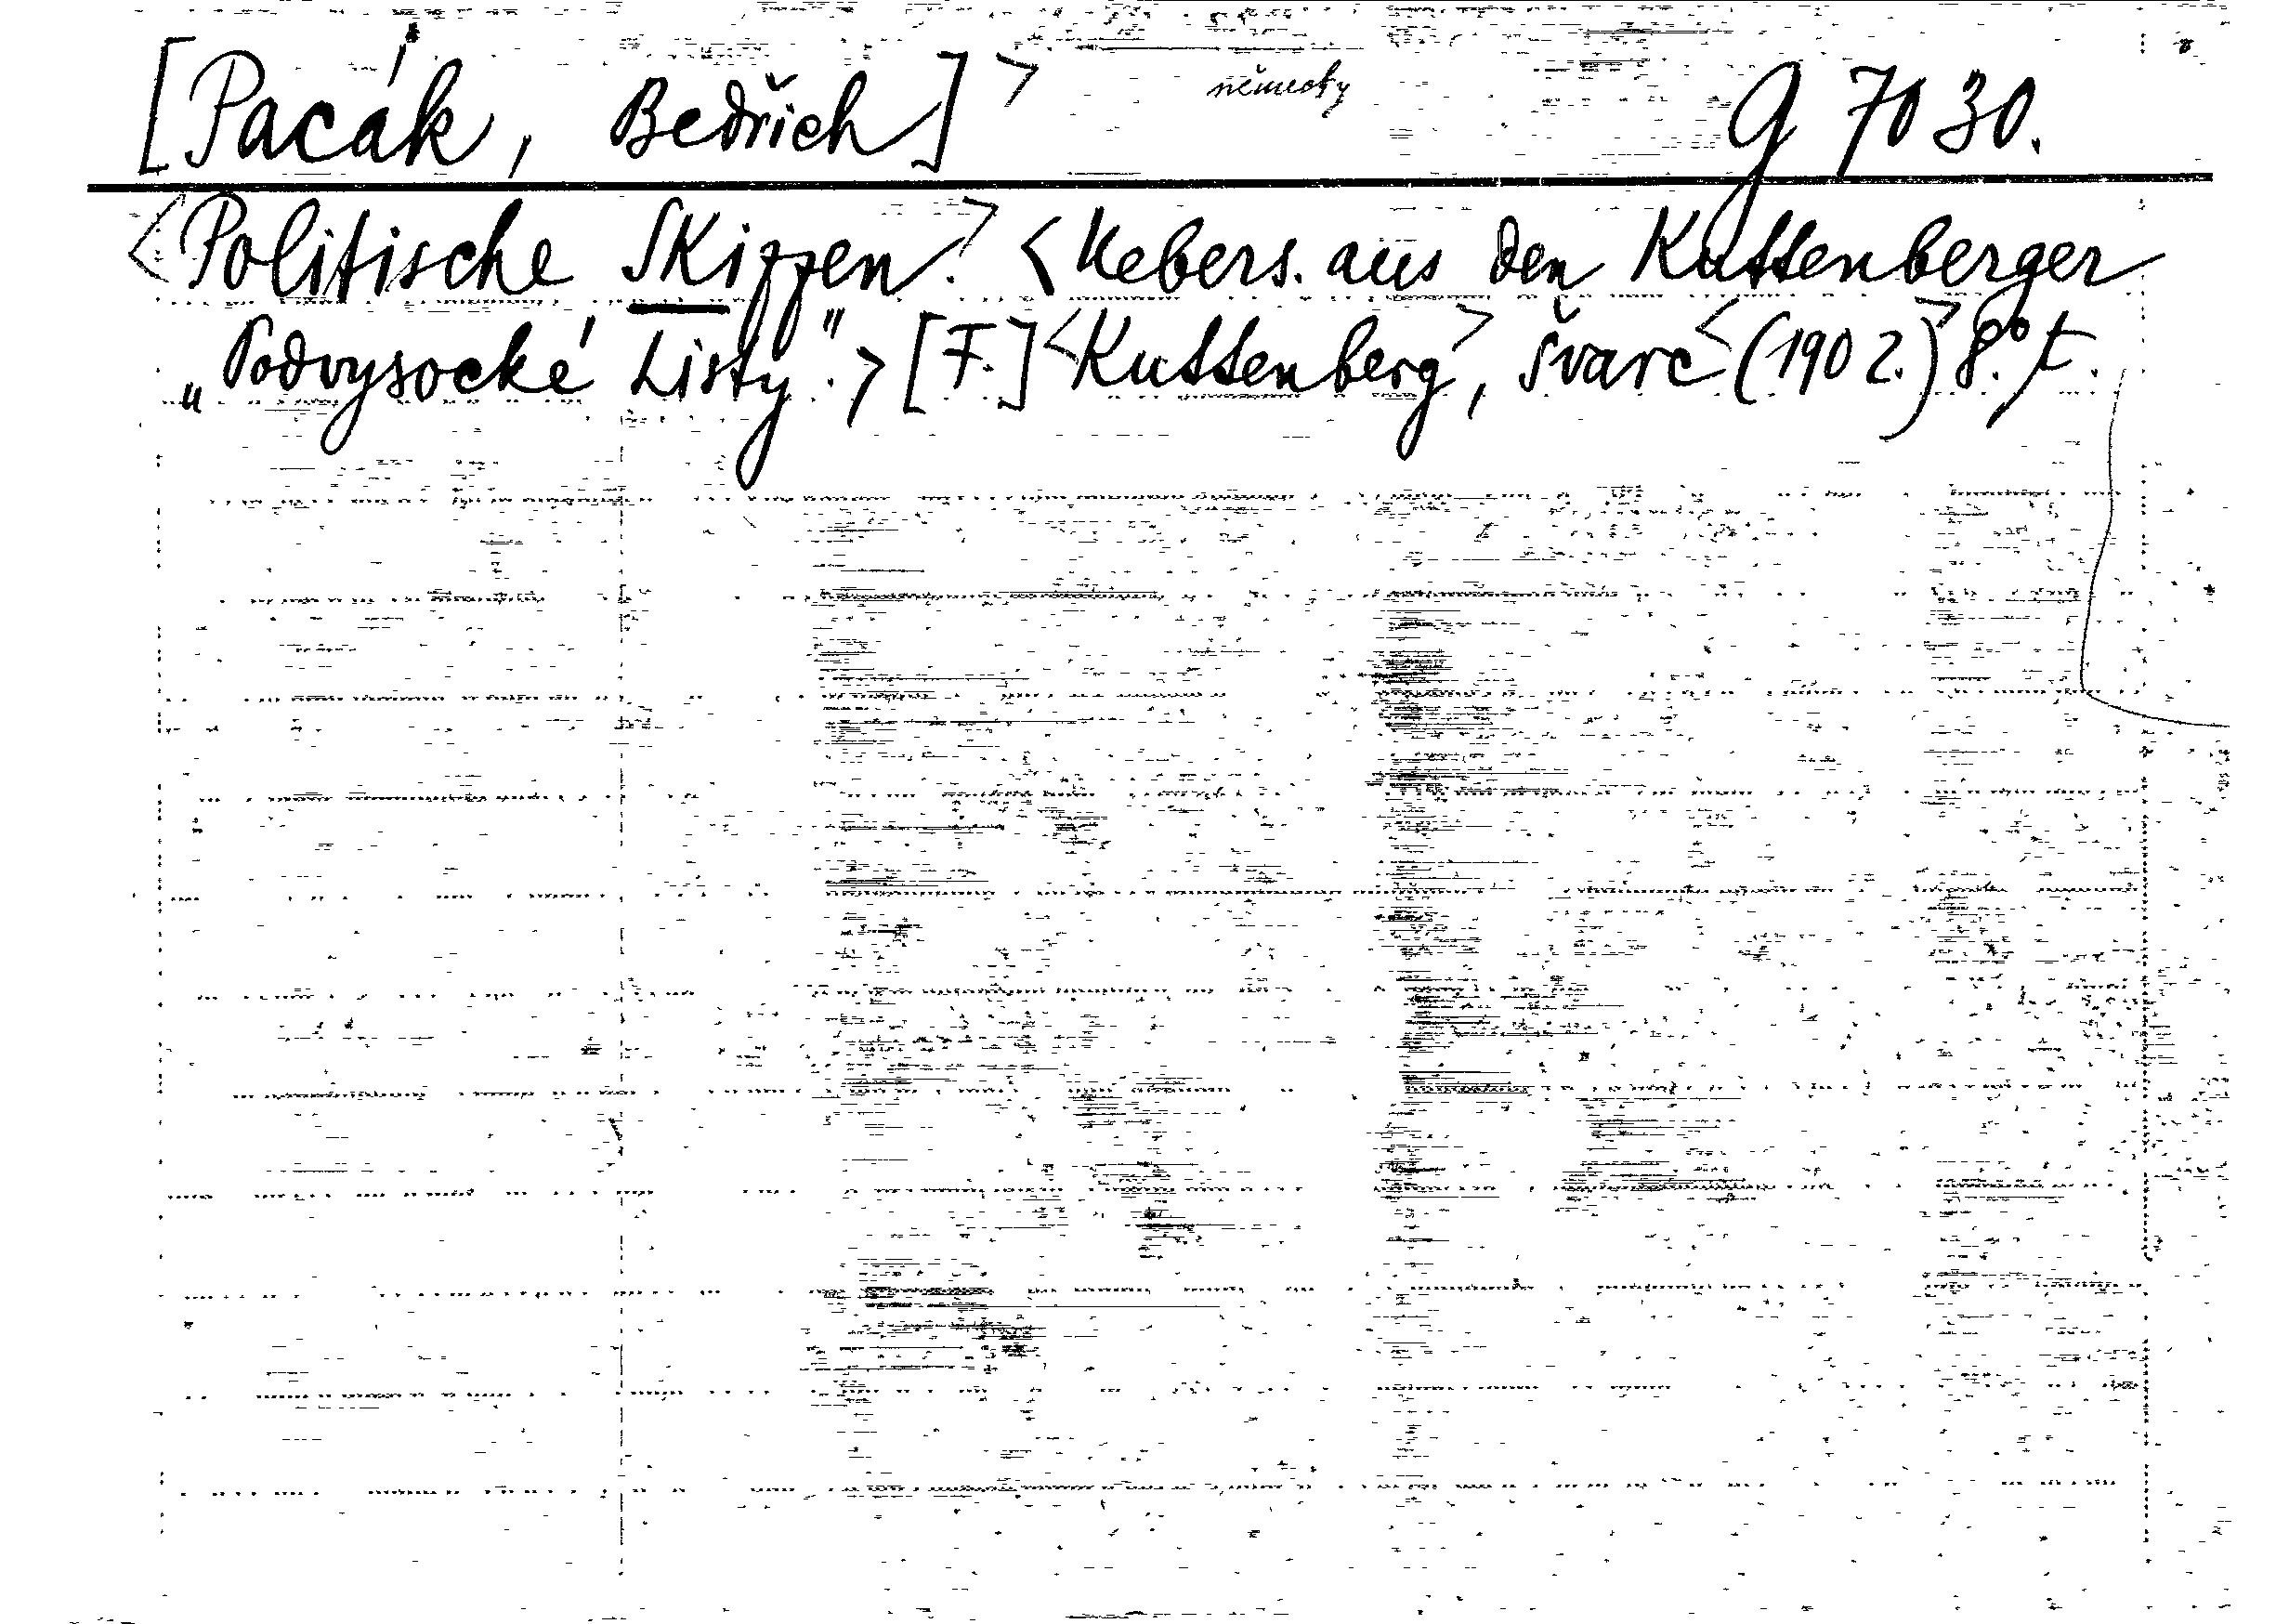 [Pacák, Bedřich]> německy G 7030.
<Politische Skizzen.> <Uebers. aus den Kuttenberger
„Podvysocké Listy".> [F.] <Kuttenberg>, Švarc <(1902.)> 8.° f.